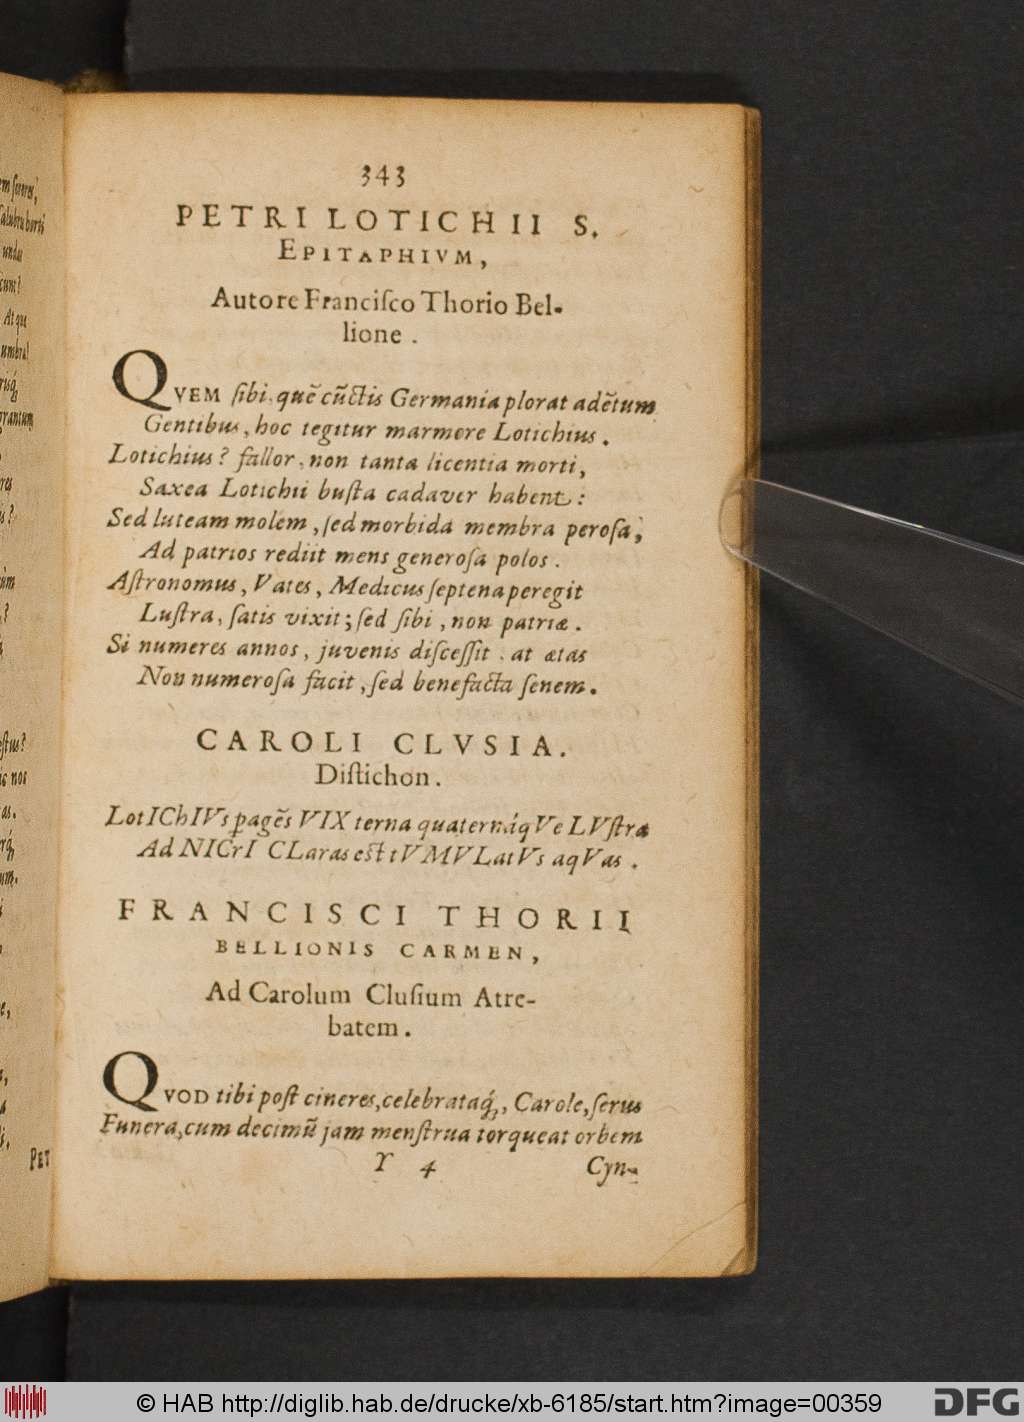 343
PETRI LOTICHII S.
EPITAPHIVM,
Autore Franciſco Thorio Bel-
lione.
QVEM ſibi, quẽ cũctis Germania plorat adẽtum
Gentibus, hoc tegitur marmore Lotichius.
Lotichius? fallor, non tanta licentia morti,
Saxea Lotichii buſta cadaver habent:
Sed luteam molem, ſed morbida membra peroſa,
Ad patrios rediit mens generoſa polos.
Aſtronomus, Vates, Medicus ſeptena peregit
Luſtra, ſatis vixit; ſed ſibi, non patriæ.
Si numeres annos, juvenis diſceſſit. at ætas
Non numeroſa facit, ſed benefacta ſenem.
CAROLI CLVSIA.
Diſtichon.
LotIChIVs ꝑagẽs VIX terna quaternáqVe LVſtra
Ad NICrI CLaras eſt tVMVLatVs aqVas.
FRANCISCI THORII
BELLIONIS CARMEN,
Ad Carolum Cluſium Atre-
batem.
QVOD tibi poſt cineres, celebratáq;, Carole, ſerus
Funera, cum decimũ jam menſtrua torqueat orbem
Y 4 Cyn-
ſalubru horti
undas
At quæ
umbra!
PET
© HAB http://diglib.hab.de/drucke/xb-6185/start.htm?image=00359
DFG